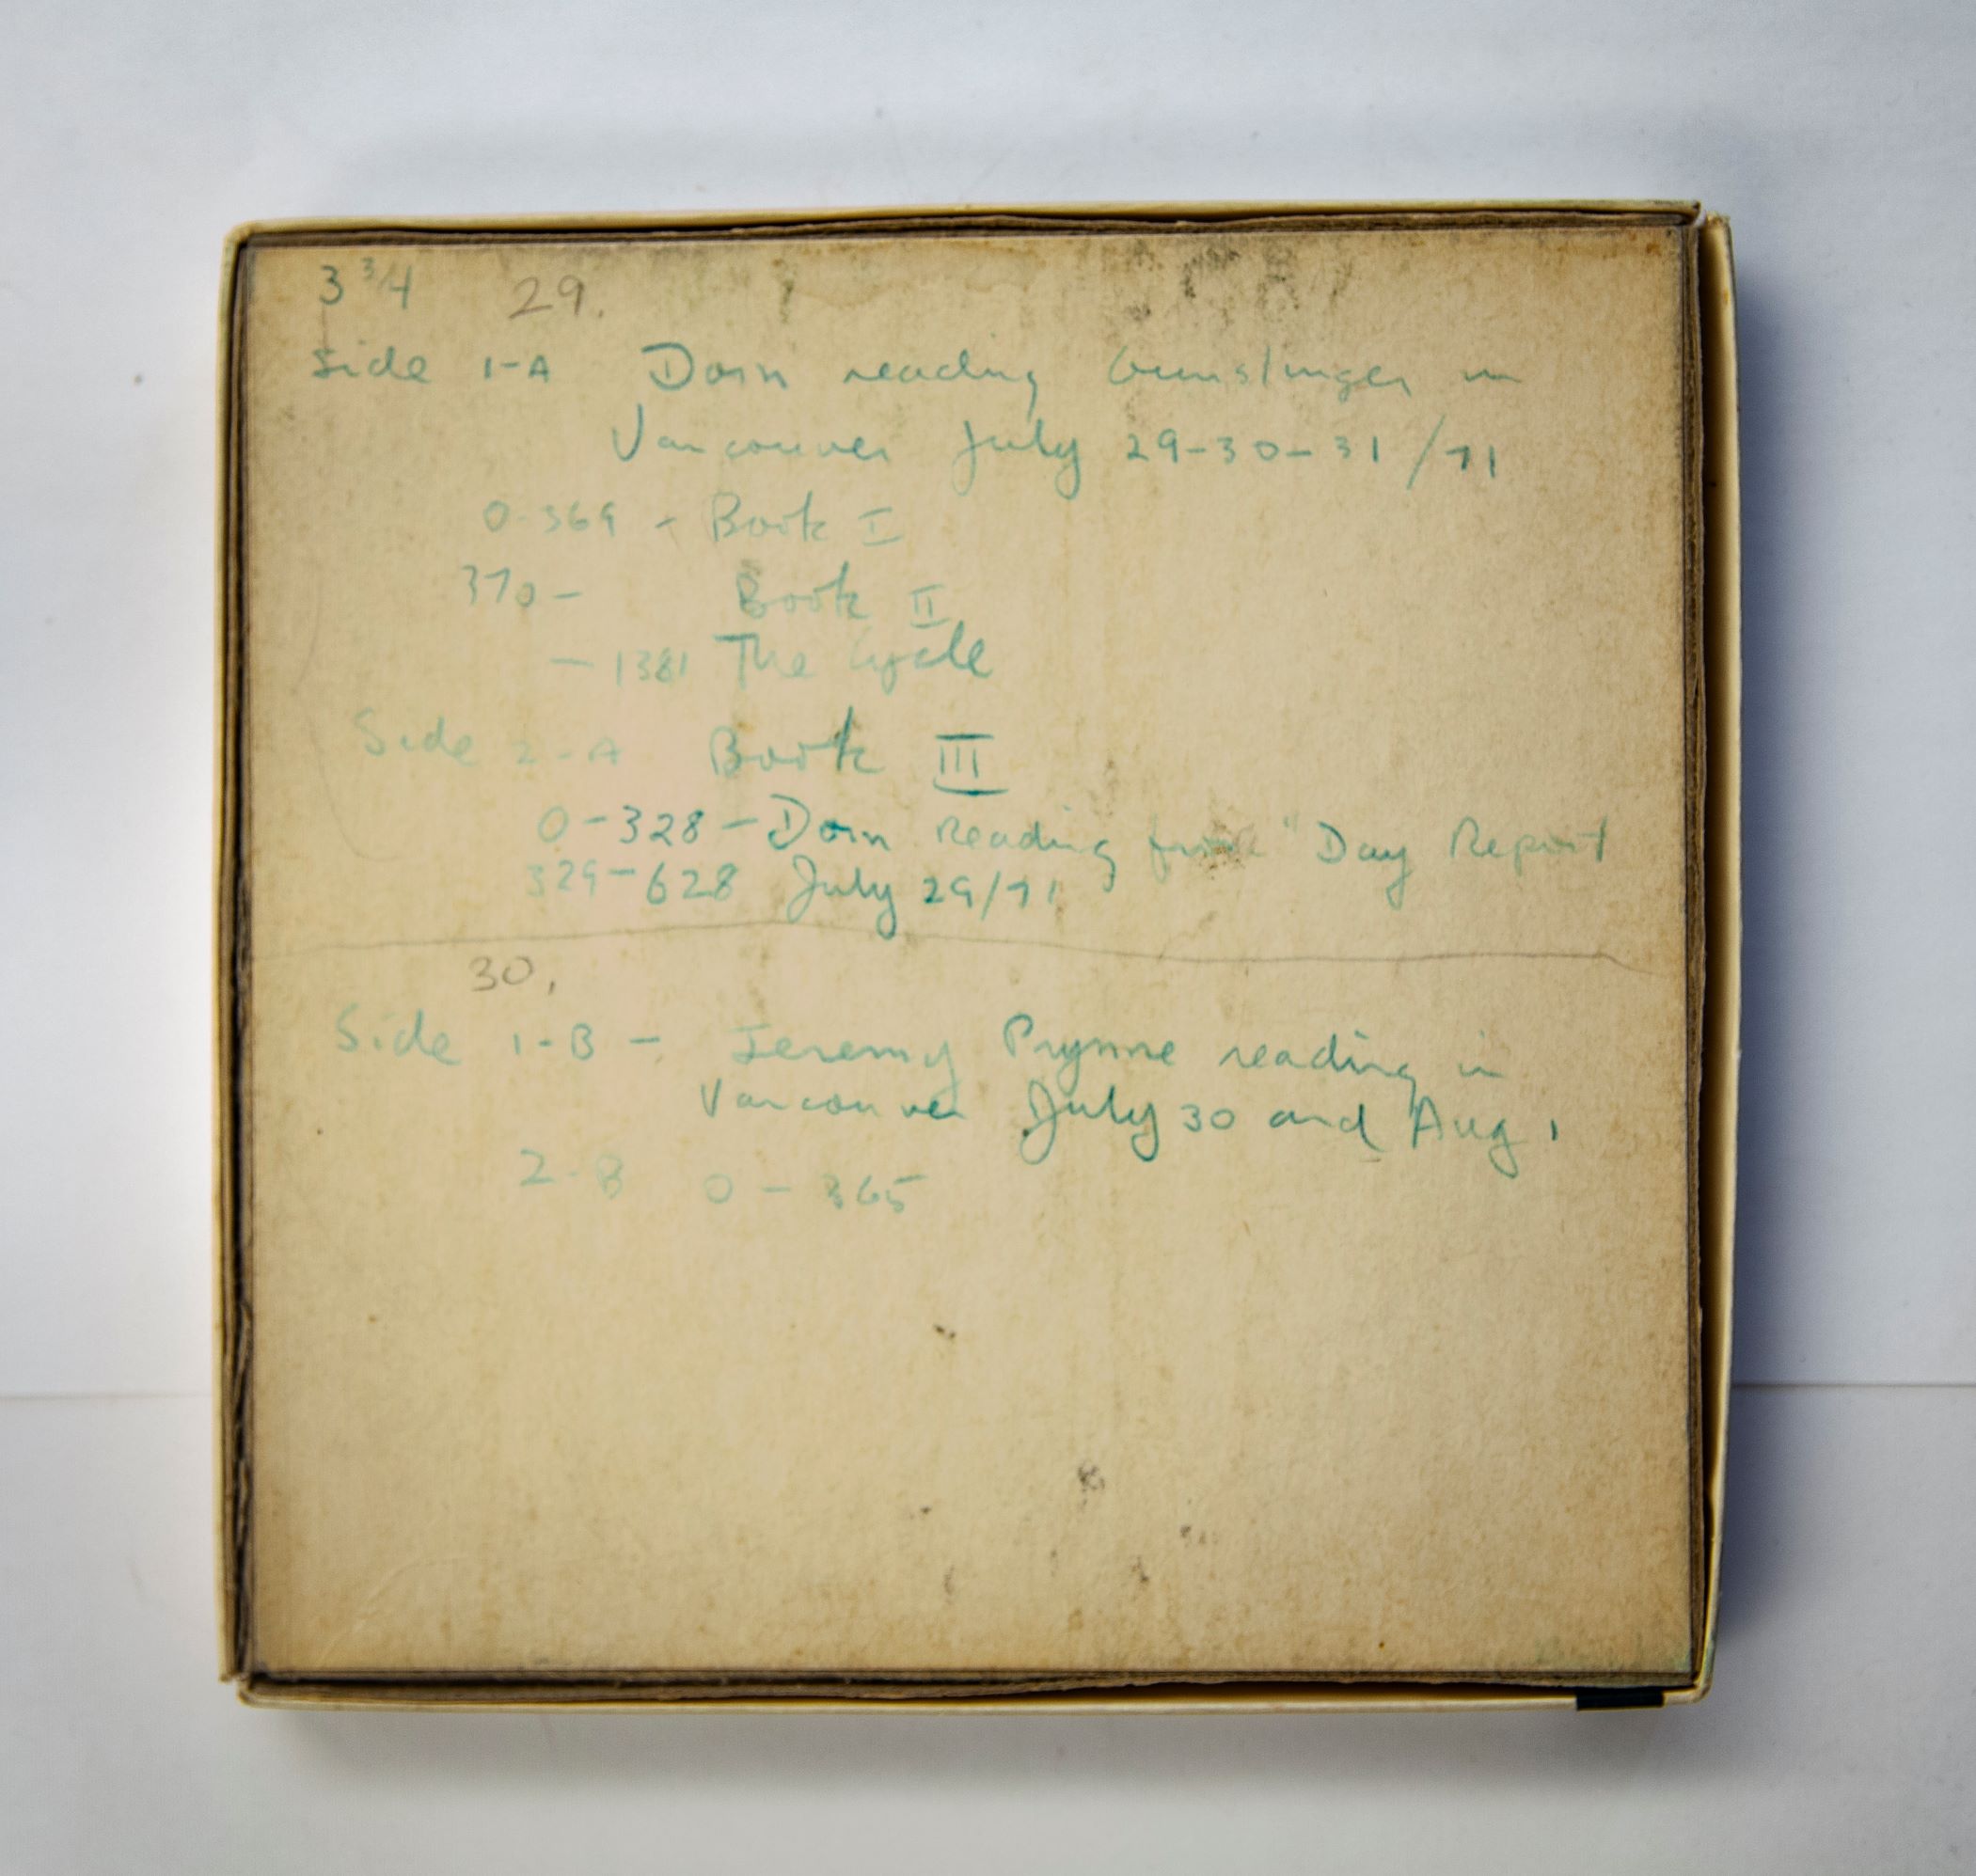 3 3/4 29.
Side 1-A Dorn reading Gunslinger in
Vancouver July 29-30-31/71
0-369 - Book I
370- Book II
- 1381 The Cycle
Side 2-A Book III
0-328 - Dorn Reading from "Day Report
329-628 July 29/71
30.
Side 1-B - Jeremy Prynne reading in
Vancouver July 30 and Aug 1
2-B 0 - 365